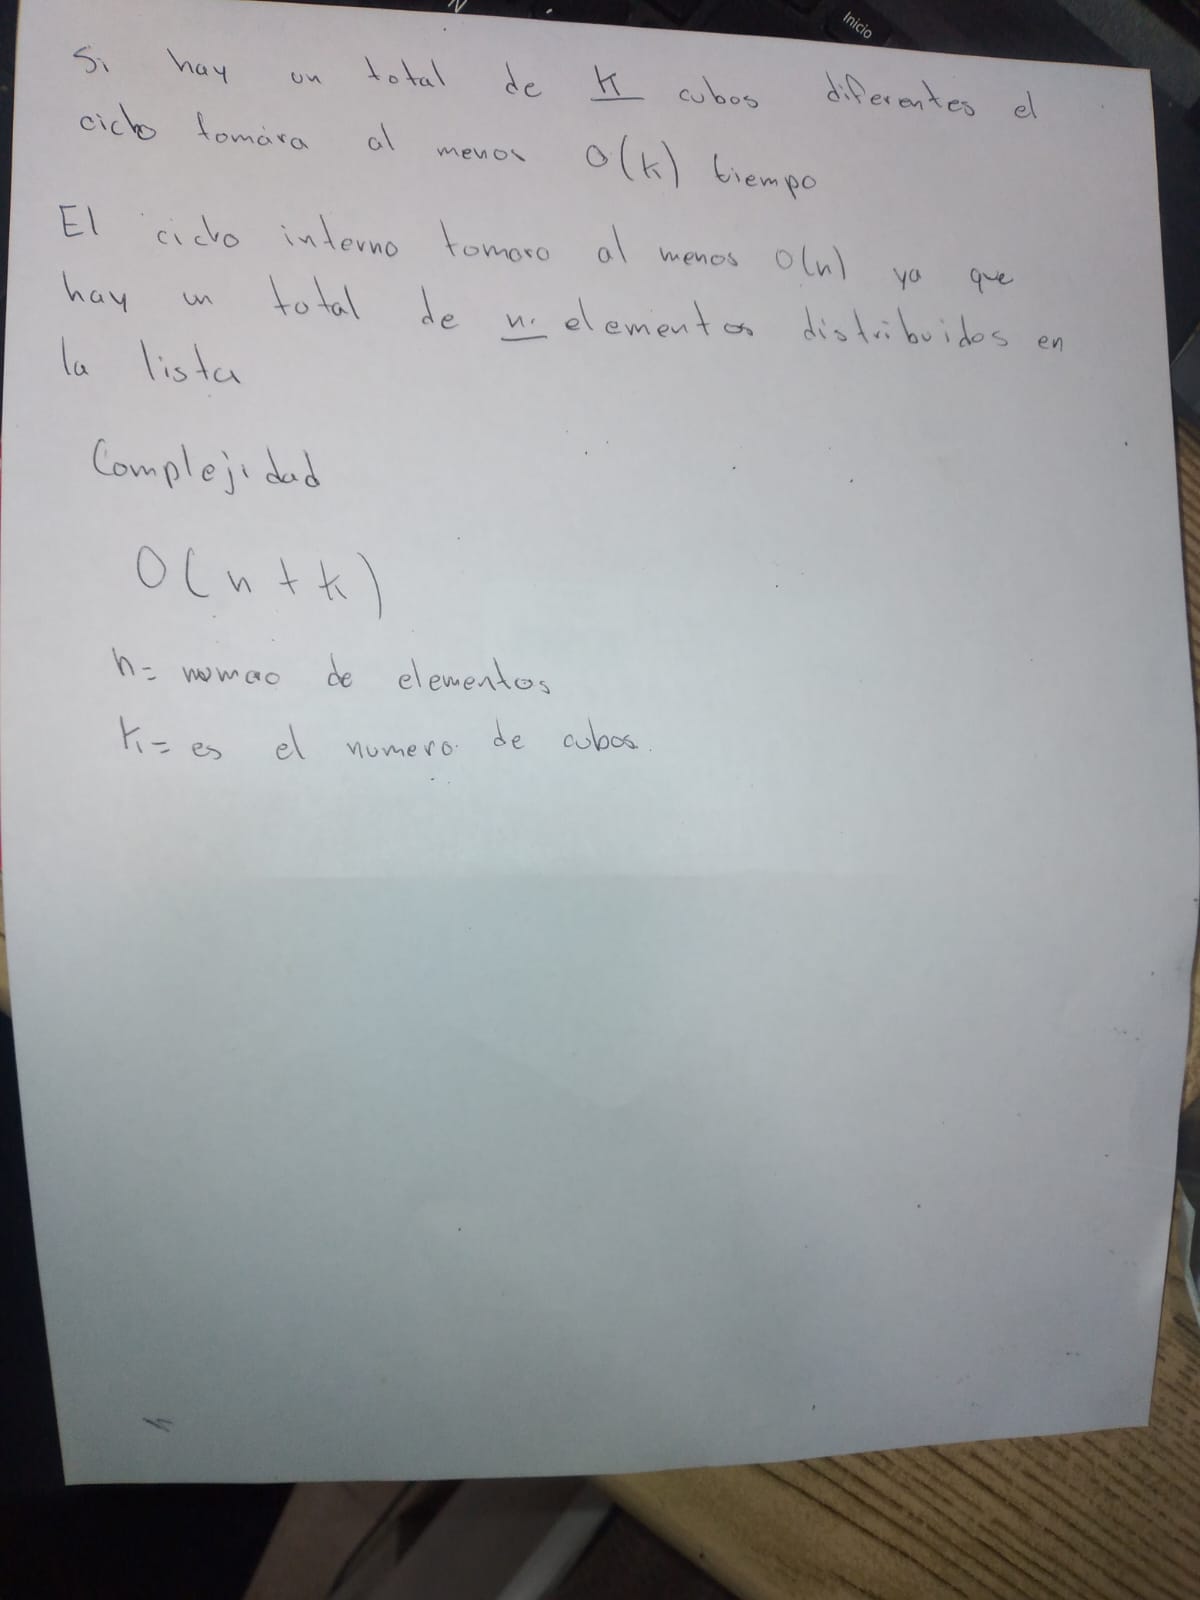 Inicio
Si hay un total de K cubos diferentes el
ciclo tomára al menos O(k) tiempo
El ciclo interno tomara al menos O(n) ya que
hay un total de n elementos distribuidos en
la lista
Complejidad
O(n+k)
n= de elementos
K= es el numero de cubos.